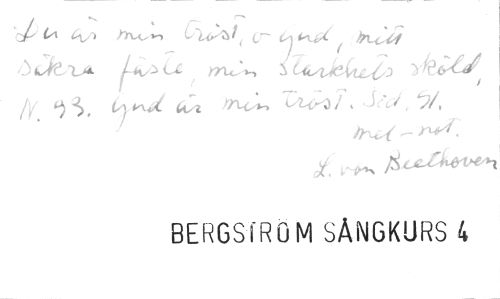 Du är min tröst, o Gud, mitt
säkra fäste, min starkhets sköld,
N. 93. Gud är min tröst. Sid. 91.
mel-not.
L. von Beethoven
BERGSTRÖM SÅNGKURS 4